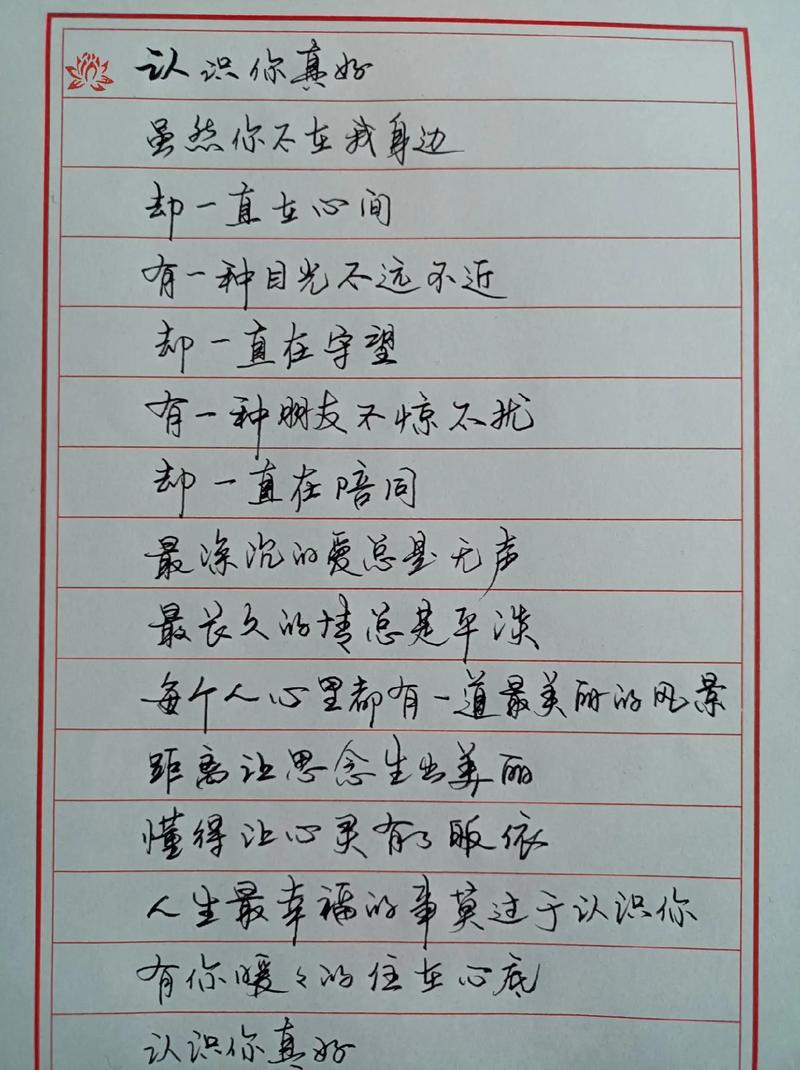 认识你真好
虽然你不在我身边
却一直在心间
有一种目光不远不近
却一直在守望
有一种朋友不惊不扰
却一直在陪同
最深沉的爱总是无声
最长久的情总是平淡
每个人心里都有一道最美丽的风景
距离让思念生出美丽
懂得让心灵有了皈依
人生最幸福的事莫过于认识你
有你暖々的住在心底
认识你真好